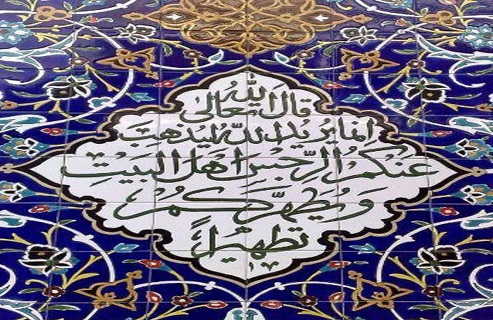 قال الله تعالى
انما يريد الله ليذهب
عنكم الرجس اهل البيت
ويطهركم
تطهيراً